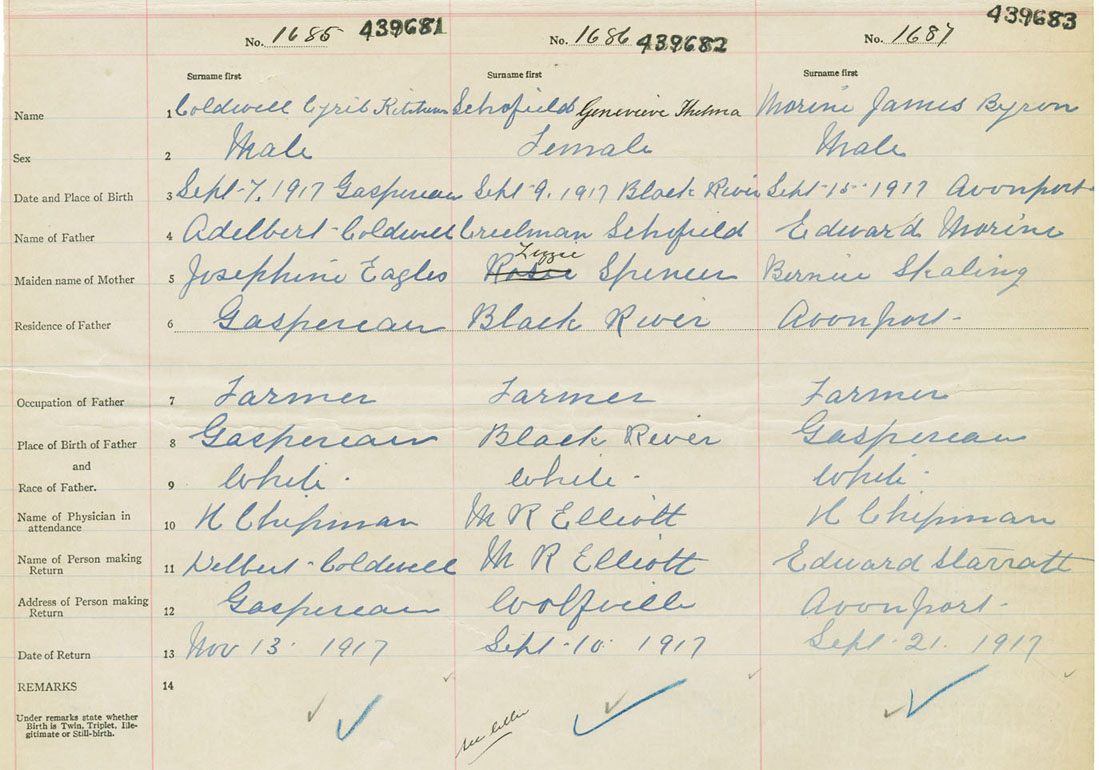 No. 1685 439681 No. 1686 439682 No. 1687 439683
Surname first Surname first Surname first
Name 1 Coldwell Cyril Schofield Genevieve Thelma Morine James Byron
Sex 2 Male Female Male
Date and Place of Birth 3 Sept 7, 1917 Gaspereau Sept 9. 1917 Black River Sept 15 1917 Avonport
Name of Father 4 Adelbert Coldwell Creelman Schofield Edward Morine
Lizzie
Maiden name of Mother 5 Josephine Eagles Rosie Spencer Bernice Skaling
Residence of Father 6 Gaspereau Black River Avonport
Occupation of Father 7 Farmer Farmer Farmer
Place of Birth of Father 8 Gaspereau Black River Gaspereau
and
Race of Father. 9 White White White
Name of Physician in
attendance 10 H Chipman M R Elliott H Chipman
Name of Person making
Return 11 Delbert Coldwell M R Elliott Edward Starratt
Address of Person making
Return 12 Gaspereau Wolfville Avonport
Date of Return 13 Nov 13. 1917 Sept 10 1917 Sept 21. 1917
REMARKS 14
Under remarks state whether
Birth is Twin, Triplet, Ille-
gitimate or Still-birth.
see letter